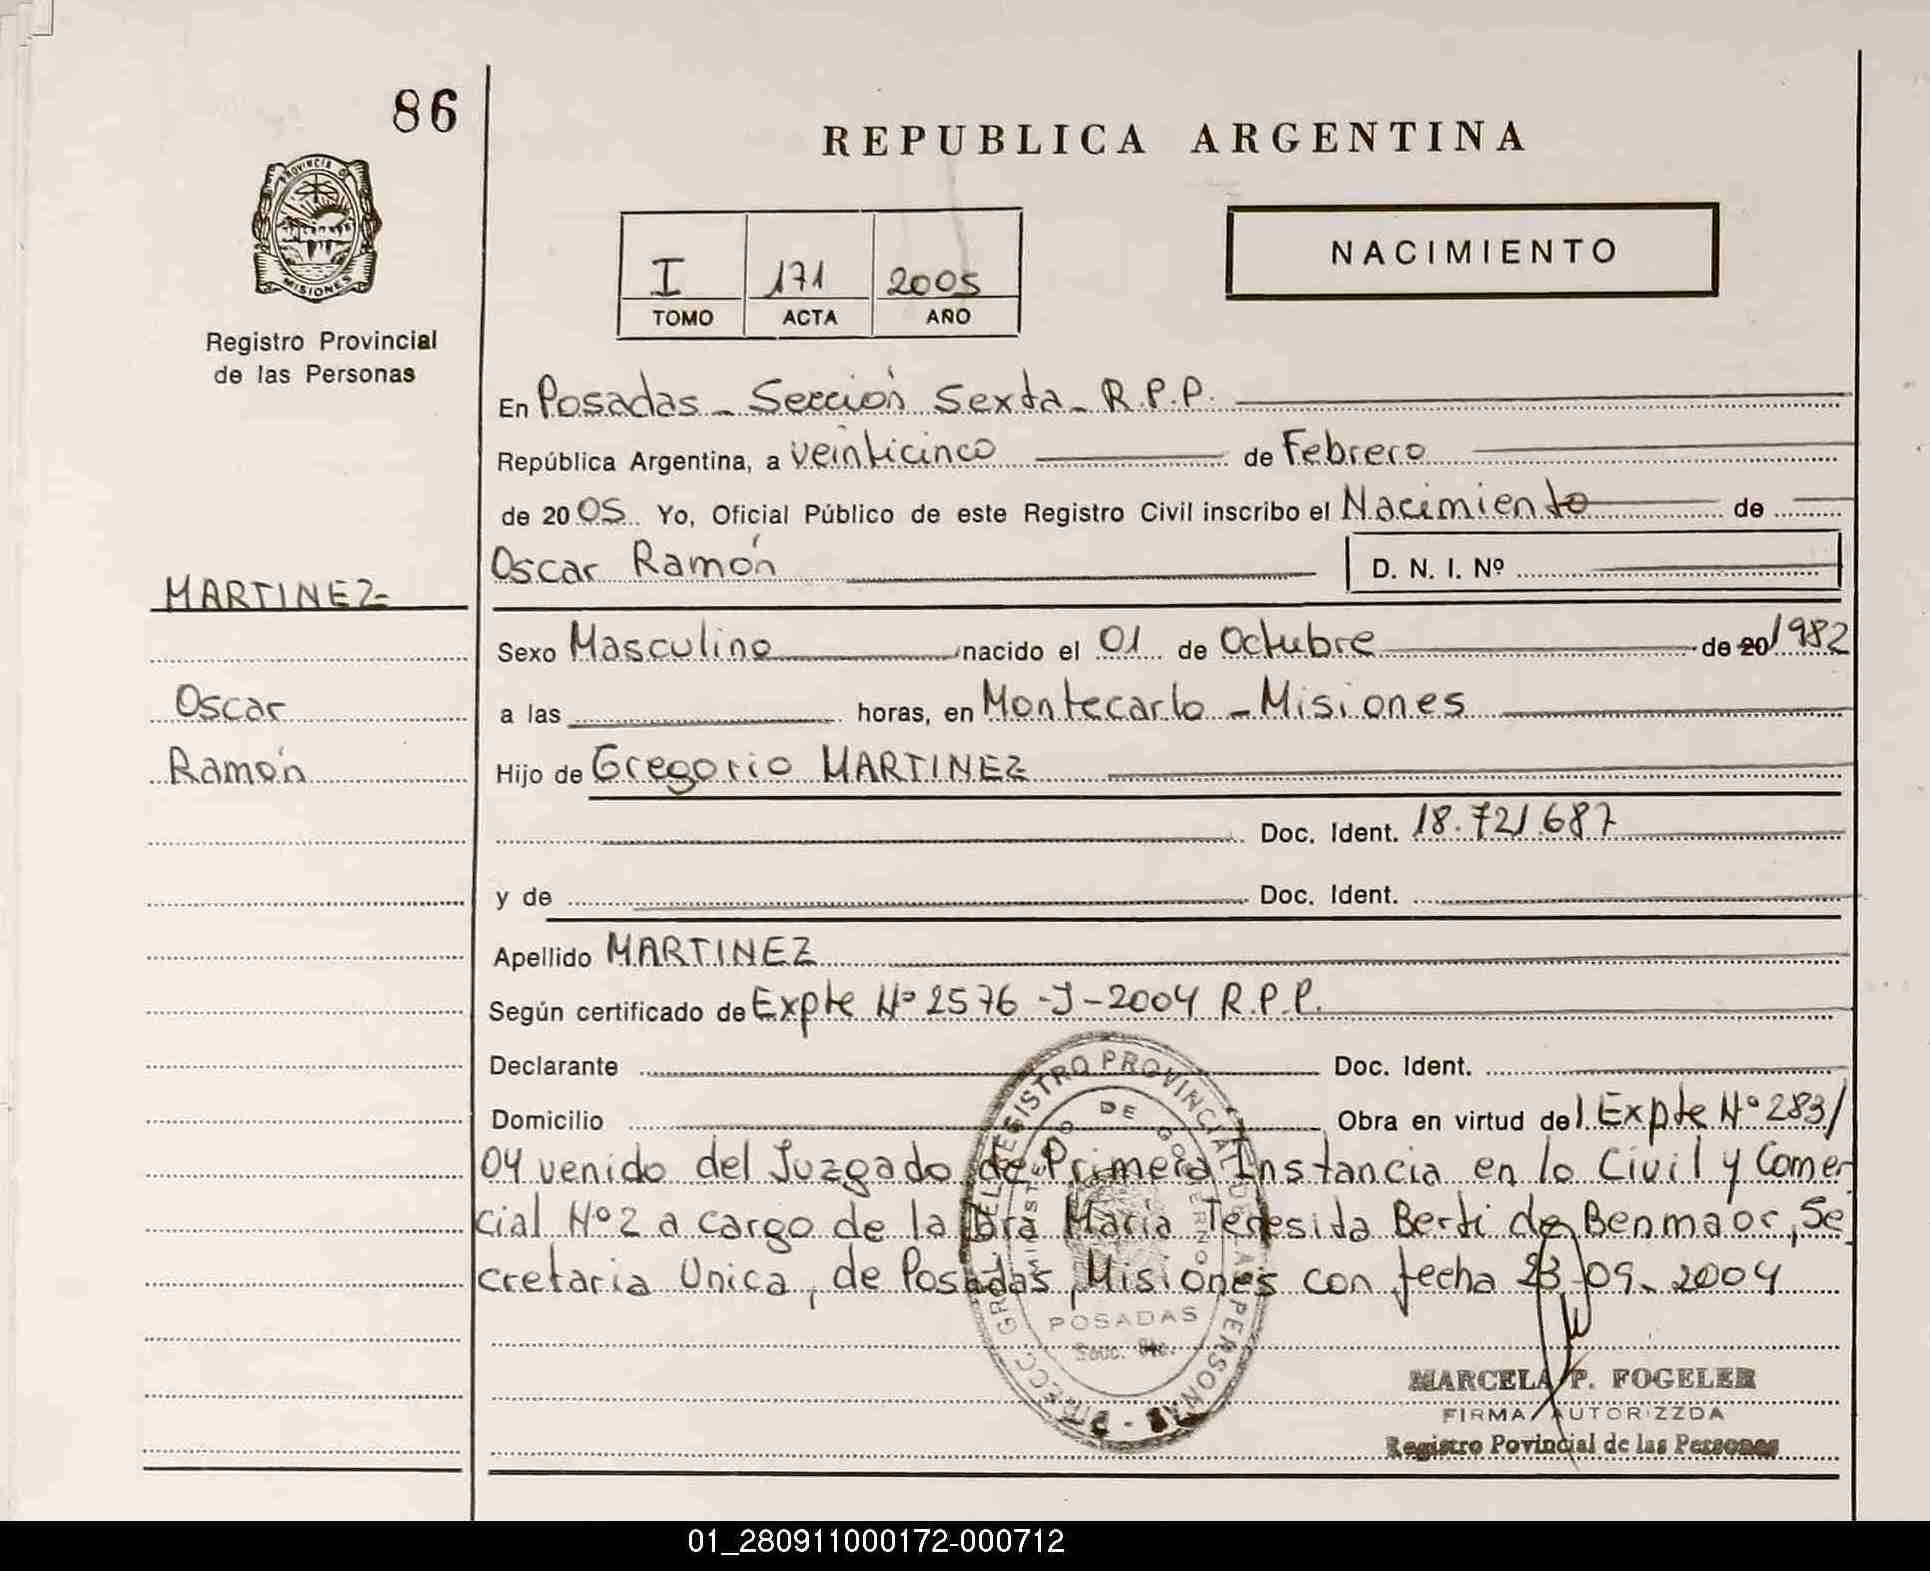 86
REPUBLICA ARGENTINA
PROVINCIA DE
MISIONES
Registro Provincial
de las Personas
I 171 2005
TOMO ACTA AÑO
NACIMIENTO
En Posadas - Sección Sexta - R.P.P.
República Argentina, a veinticinco de Febrero
de 20 05 Yo, Oficial Público de este Registro Civil inscribo el Nacimiento de
Oscar Ramón D. N. I. Nº
MARTINEZ
Sexo Masculino nacido el 01 de Octubre de 20 1982
Oscar
a las horas, en Montecarlo - Misiones
Ramón
Hijo de Gregorio MARTINEZ
Doc. Ident. 18.721.687
y de Doc. Ident.
Apellido MARTINEZ
Según certificado de Expte Nº 2576 -J-2004 R.P.P.
Declarante Doc. Ident.
Domicilio Obra en virtud del Expte Nº 283/
04 venido del Juzgado de Primera Instancia en lo Civil y Comer
cial Nº 2 a cargo de la Dra Maria Teresida Berti de Benmaor, Se
cretaria Unica, de Posadas, Misiones con fecha 23-09-2004
REGISTRO PROVINCIAL DE LAS PERSONAS
MINISTERIO DE GOBIERNO
POSADAS
MARCELA P. FOGELER
FIRMA AUTORIZZDA
Registro Povincial de las Personas
01_280911000172-000712